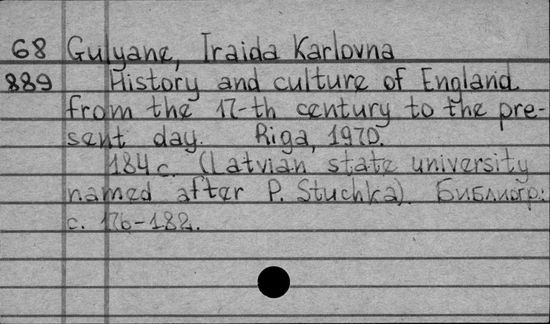 68 Gulyane, Iraida Karlovna
889 History and culture of England
from the 17-th century to the pre-
sent day. Riga, 1970.
184 c. (Latvian state university
named after P. Stuchka). Библиогр.:
c. 176-182.